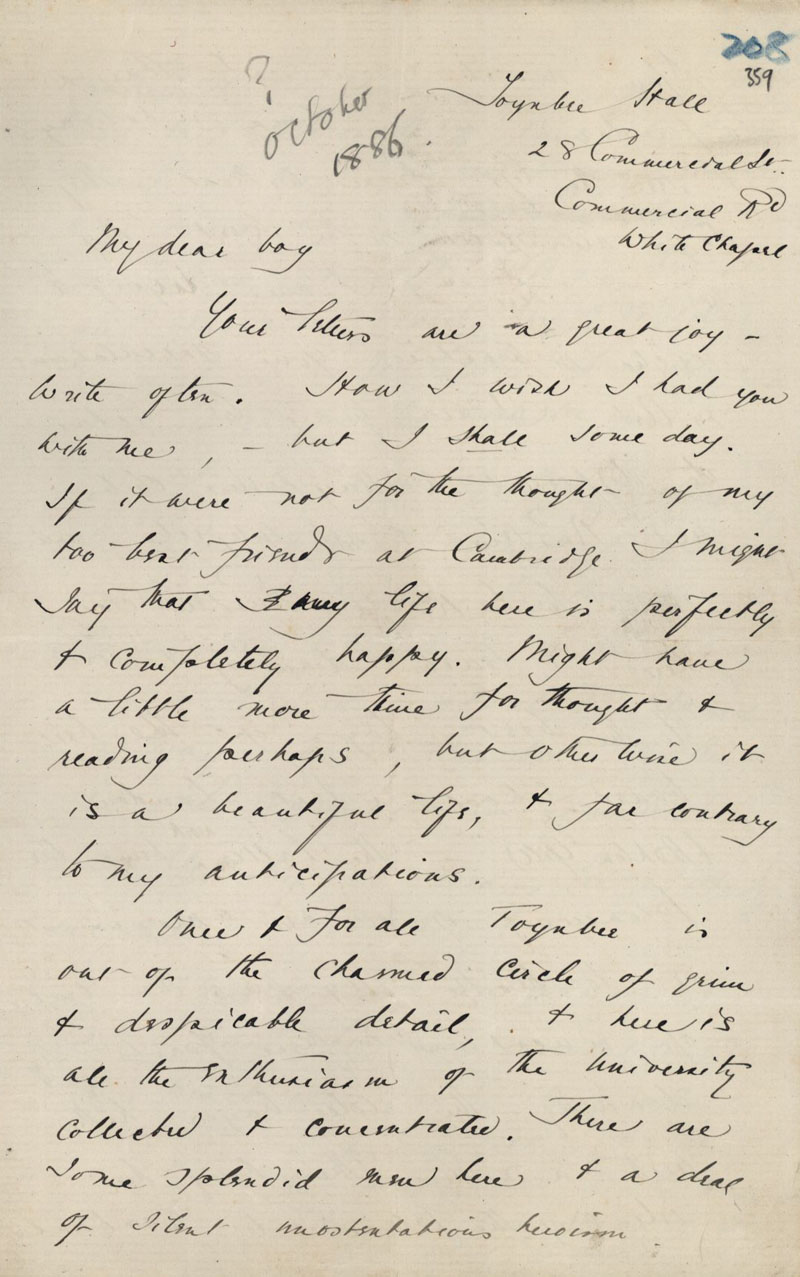 208
359
?
October
1886.
Toynbee Hall
28 Commercial St.
Commercial Rd
White Chapel
My dear boy
Your letters are a great joy -
write often. How I wish I had you
with me, - but I shall some day.
If it were not for the thought of my
too best friends at Cambridge I might
say that my life here is perfectly
& completely happy. Might have
a little more time for thought &
reading perhaps, but otherwise it
is a beautiful life, & far contrary
to my anticipations.
Once & for all Toynbee is
out of the charmed circle of grim
& despicable detail, & here is
all the enthusiasm of the University
collected & concentrated. There are
some splendid men here & a deal
of silent unostentatious heroism.